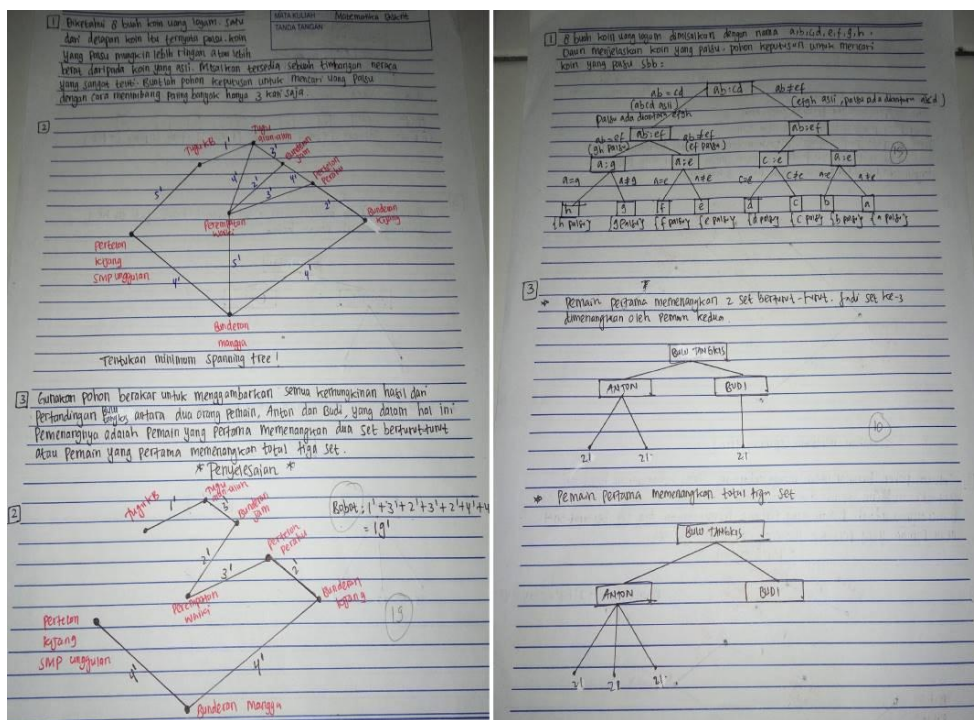 MATA KULIAH Matematika Diskrit
TANDA TANGAN
1 Diketahui 8 buah koin uang logam. Satu
dari delapan koin itu ternyata palsu. koin
yang palsu mungkin lebih ringan atau lebih
berat daripada koin yang asli. Misalkan tersedia sebuah timbangan neraca
yang sangat teliti. Buatlah pohon keputusan untuk mencari uang palsu
dengan cara menimbang paling banyak hanya 3 kali saja.
2
Tugu KB
1'
Tugu alun-alun
3'
Bunderan Jam
4'
2'
4'
Pertelon Perahu
3'
5'
2'
Perempatan Waiki
Bunderan Kijang
Pertelon
Kijang
SMP unggulan
5'
4'
4'
Bunderan
mangga
Tentukan minimum spanning tree!
3 Gunakan pohon berakar untuk menggambarkan semua kemungkinan hasil dari
Pertandingan Bulu tangkis antara dua orang pemain, Anton dan Budi, yang dalam hal ini
Pemenangnya adalah Pemain yang pertama memenangkan dua set berturut-turut
atau Pemain yang pertama memenangkan total tiga set.
* Penyelesaian *
2
Tugu KB
1'
Tugu alun-alun
3'
Bunderan Jam
Bobot: 1'+3'+2'+3'+2'+4'+4
= 19'
2'
Pertelon Perahu
3'
2'
Perempatan
Waiki
Bunderan
Kijang
19
Pertelon
Kijang
SMP unggulan
4'
4'
Bunderan Mangga
1 8 buah koin uang logam dimisalkan dengan nama a,b,c,d,e,f,g,h.
Daun menjelaskan koin yang palsu. pohon keputusan untuk mencari
koin yang palsu sbb:
ab = cd
ab:cd
ab ≠ cd
(abcd asli)
(efgh asli, palsu ada diantara abcd)
palsu ada diantara efgh
ab=ef
ab:ef
ab≠ef
ab:ef
(gh palsu)
(ef palsu)
15
a:g
a:e
c:e
a:e
a=g
a≠g
a=e
a≠e
c=e
c≠e
a=e
a≠e
h
g
f
e
d
c
b
a
{h palsu}
{g palsu}
{f palsu}
{e palsu}
{d palsu}
{c palsu}
{b palsu}
{a palsu}
3
* Pemain pertama memenangkan 2 set berturut-turut. Jadi set ke-3
dimenangkan oleh pemain kedua
BULU TANGKIS
ANTON
BUDI
10
21
21
21
* Pemain pertama memenangkan total tiga set
BULU TANGKIS
ANTON
BUDI
21
21
21